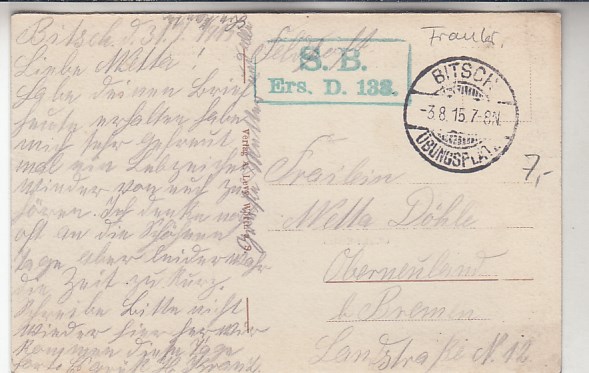 Bitsch d. 31.
Liebe Metta!
Habe deinen Brief
heute erhalten habe
mich sehr gefreut
mal ein Lebzeichen
wieder von euch zu
hören. Ich denke
oft an die schönen
tage aber leider wahr
die Zeit zu kurz.
Schreibe Bitte nicht
wieder hier her wir
kommen diese Tage
fort
Feldpost
S. B.
Ers. D. 133.
BITSCH
-3.8.15.7-8N.
ÜBUNGSPLATZ
7,-
Fräulein
Metta Döhle
Oberneuland
b. Bremen
Landstraße N. 12